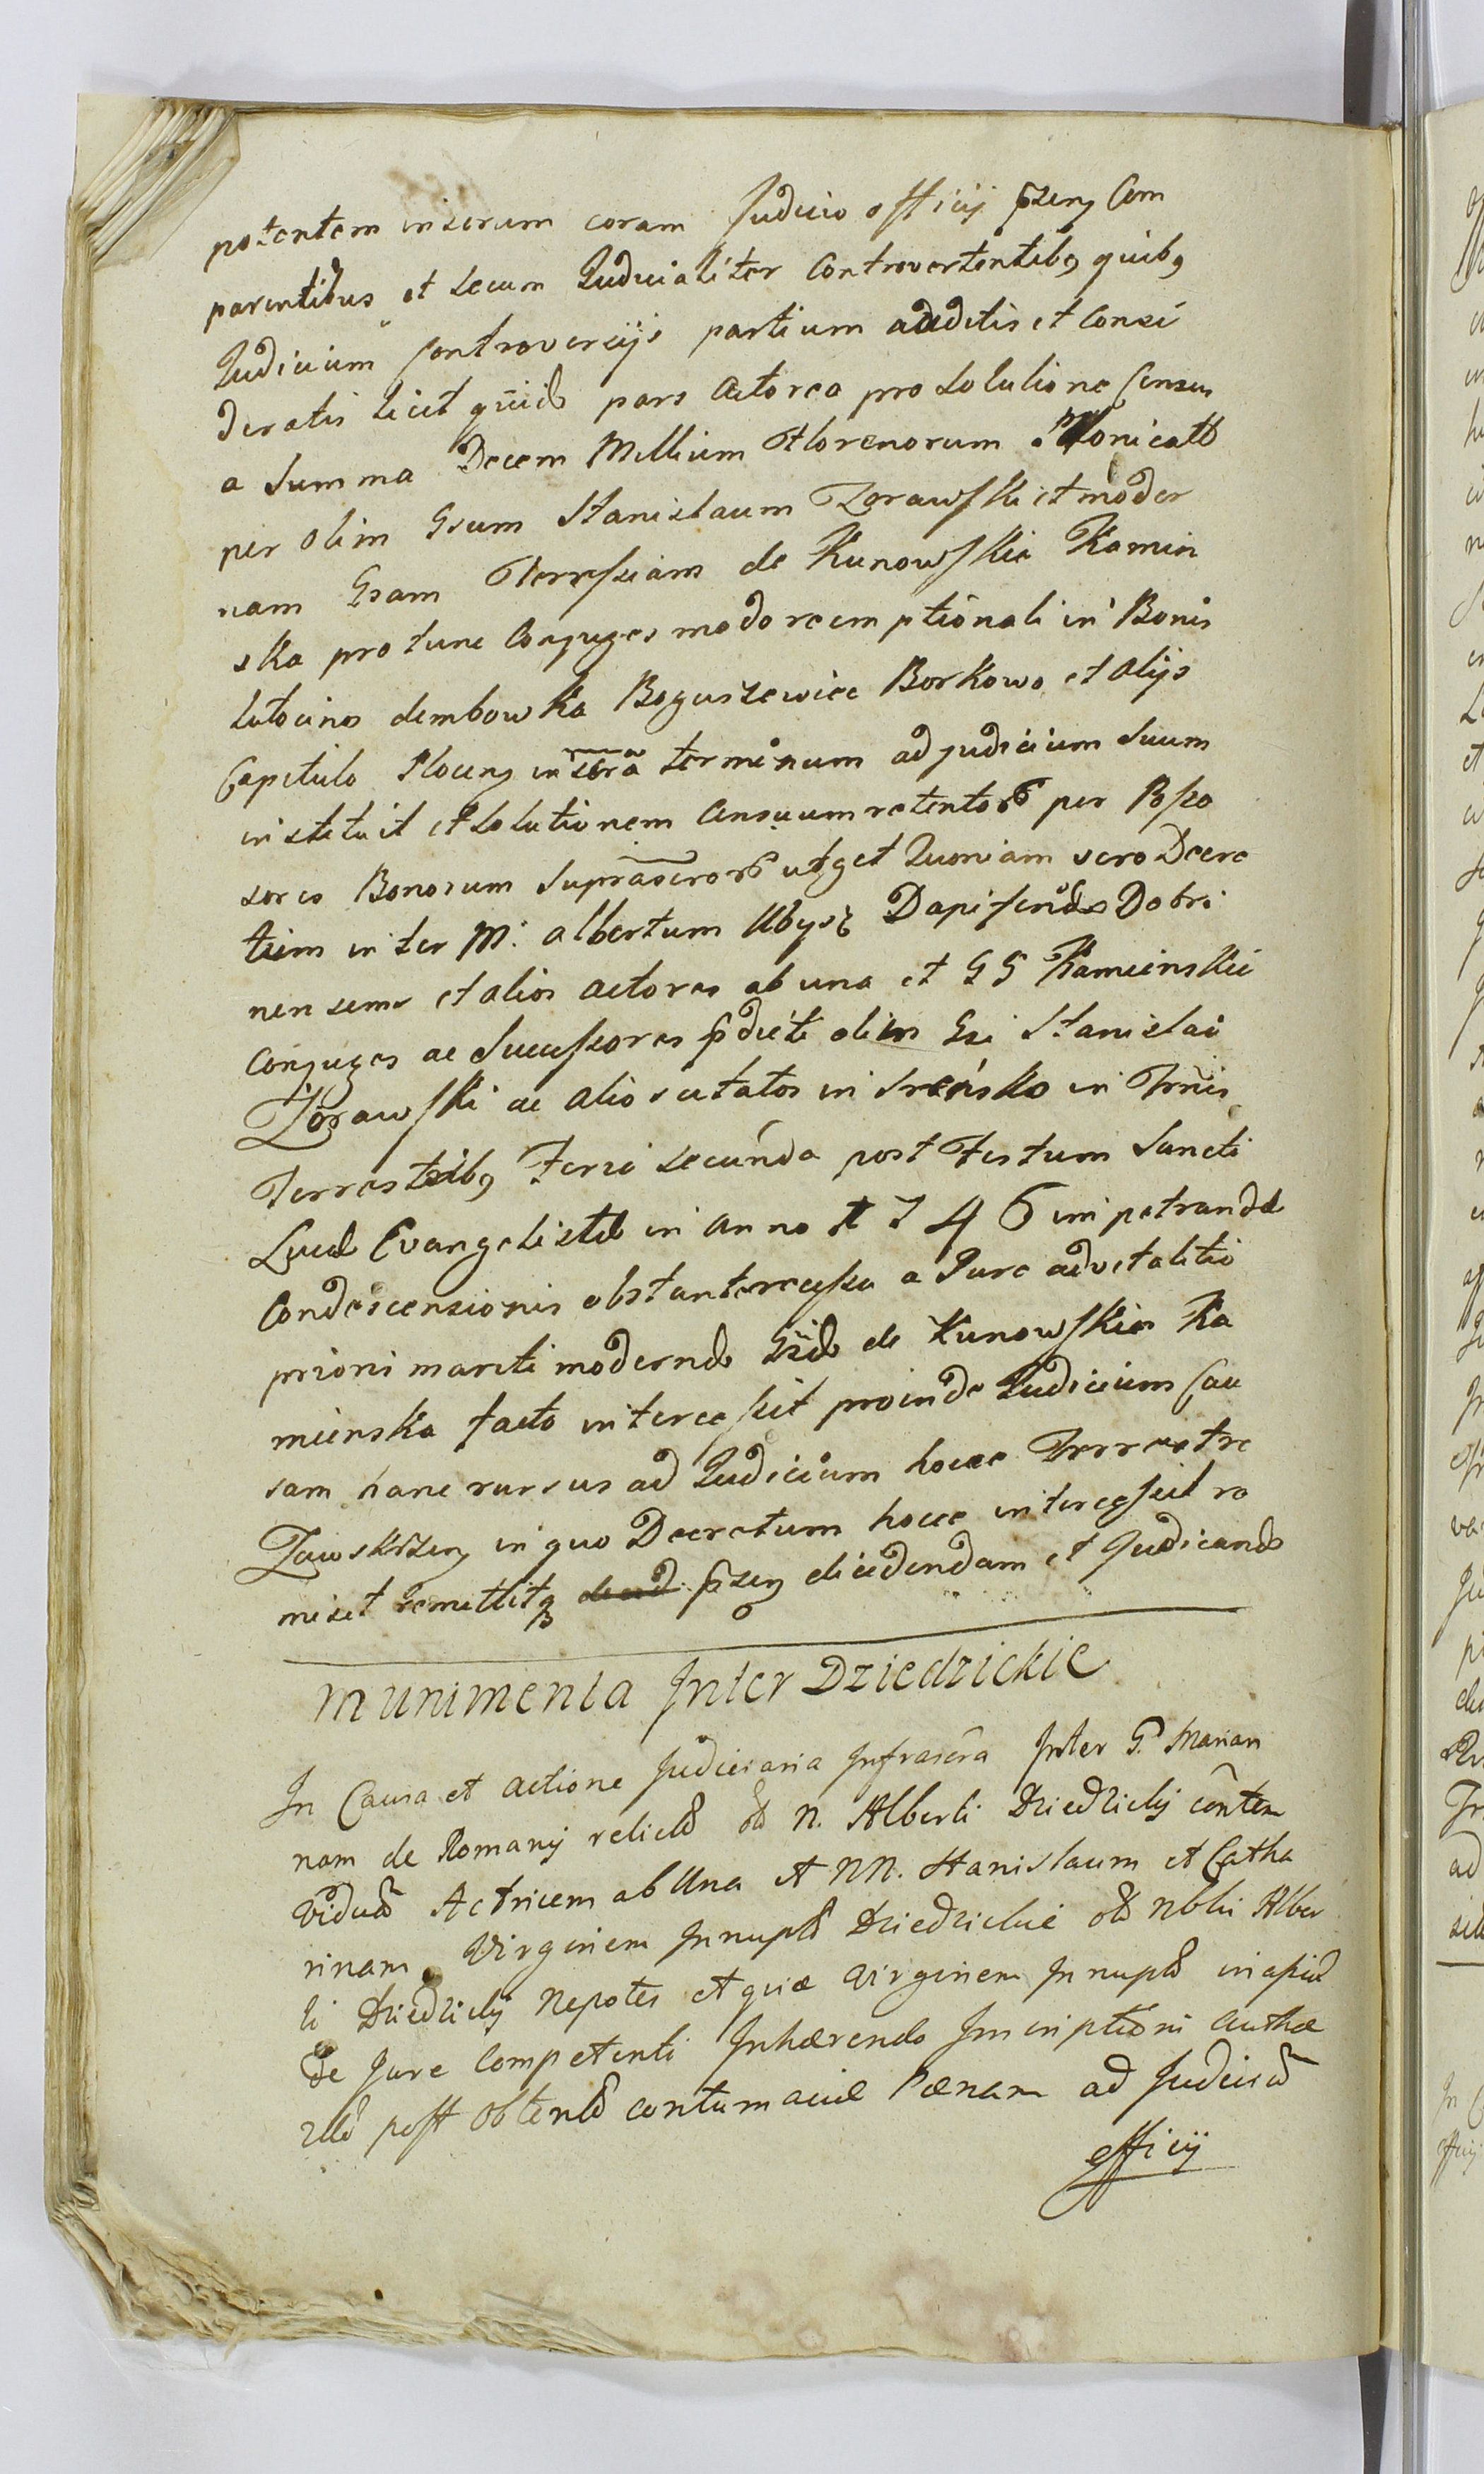 potentem inserum coram Judicio officij pñseng Com
parentibus et secum Judicialiter Controvertentibq quibq
Judicium Controversijs partium auditis et Consi
deratis licet quid pars Actorea pro solutione Census
a Summa Decem Millium Florenorum
per olim Gsum Stanislaum Zorawski et moder
nam Gsam Terressiam de Kunowskie Kamin
ska pro tunc Conjuges modo reemptionali in Bonis
lutocinos dembowka Boguszewice Borkowo et alijs
Capitulo Plocens inscra terminum ad judicium Suum
instituit et solutionem Censuum retentor per Posse
sores Bonorum Suprascror urget Quoniam vero Decre
tum inter M: Albertum Ubysz Dapiferum Dobri
nensem et alios actores ab una et GG Kamienskie
Conjuges ac Successores pdicti olim Gsi Stanislai
Zorawski ac alios citatos in Srensko in Trnis
Terrestribq Feria secunda post Festum Sancti
Lucæ Evangelistæ in anno 1746 impetrandæ
Condescensionis obstante recessu a Jure advitalitio
priori mariti modernæ Gsæ de Kunowskie Ka
mienska facto intercessit proinde Judicium Cau
sam hanc rursus ad Judicium hocce Terrestre
Zawskrzeng in quo Decretum hocce intercessit re
misit remittitq pñseng decidendam et Judicand
Munimenta Inter Dziedzickie
In Causa et actione Judiciaria Infrascra Inter G. Marian
nam de Romany relictæ olim N. Alberti Dziedzicky
Viduam Actricem ab Una et NN. Stanislaum et Catha
rinam Virginem Innuptam Dziedzickie olim Nblis Alber
ti Dziedzicky Nepotes et quæ Virginem Innuptam
de Jure Competenti Inhærendo Inscriptioni
post obtentam contumaciæ Pænam ad Judicium
officij